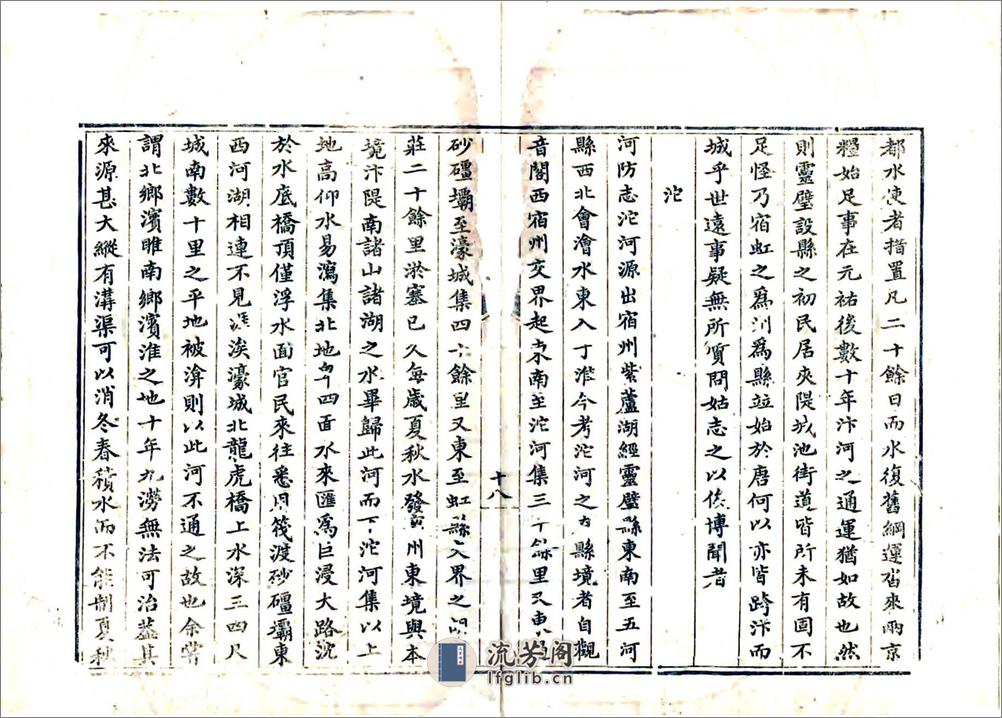 都水使者措置凡二十餘日而水復舊綱運沓來兩京
糧始足事在元祐後數十年汴河之通運猶如故也然
則靈璧設縣之初民居夾隄城池街道皆所未有固不
足怪乃宿虹之為州為縣竝始於唐何以亦皆跨汴而
城乎世遠事疑無所質問姑志之以俟博聞者
沱
河防志沱河源出宿州紫蘆湖經靈璧縣東南至五河
縣西北會澮水東入于淮今考沱河之在縣境者自觀
音閣西宿州交界起東南至沱河集三十餘里又東
十八
砂礓壩至濠城集四十餘里又東至虹縣入界之
莊二十餘里淤塞已久每歲夏秋水發宿州東境與本
境汴隄南諸山諸湖之水畢歸此河而下沱河集以上
地高仰水易瀉集北地窄四面水來匯為巨浸大路沈
於水底橋頂僅浮水面官民來往悉用筏渡砂礓壩東
西河湖相連不見涯涘濠城北龍虎橋上水深三四尺
城南數十里之平地被渰則以此河不通之故也余嘗
謂北鄉濱睢南鄉濱淮之地十年九澇無法可治葢其
來源甚大縱有溝渠可以消冬春積水而不能制夏秋
流芳阁
lfglib.cn